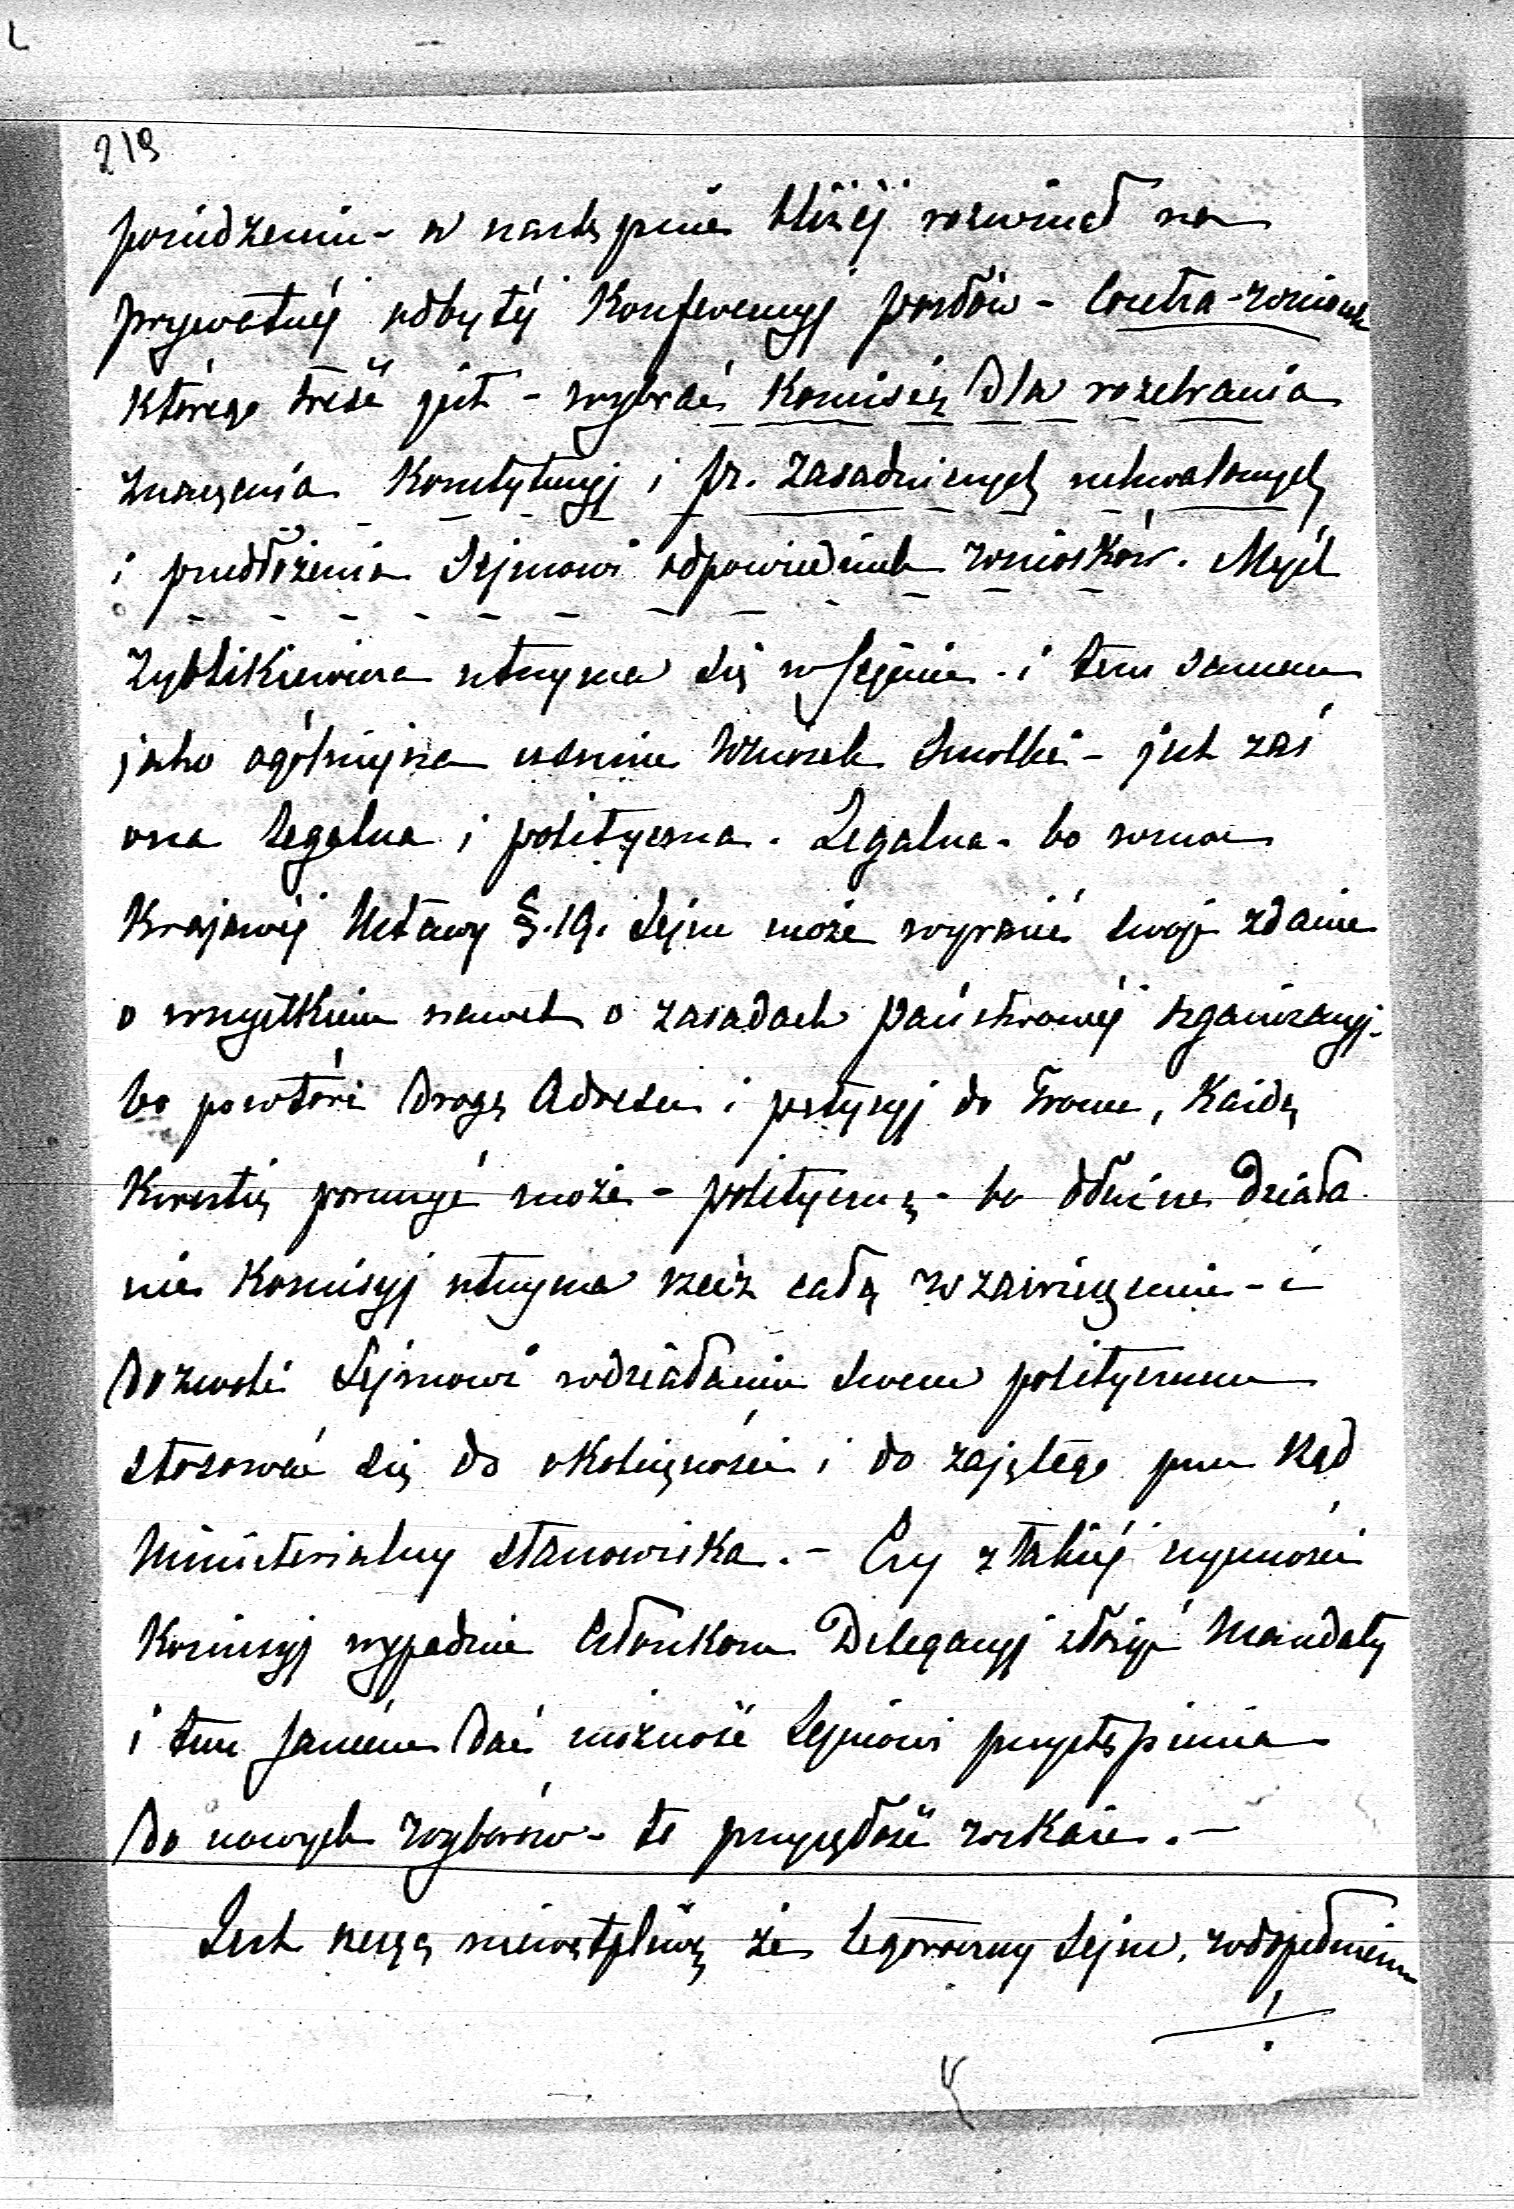 219
posiedzeniu - a następnie bliżéj rozwinął na
prywatnéj odbytéj Konferencyj posłów - Contra-wniosek
którego treść jest - wybrać Komisię dla rozebrania
znaczenia Konstytucyj i pr. zasadniczych uchwalonych
i przedłożenia Sejmowi odpowiednich wniosków. Myśl
Zyblikiewicza utrzyma się w Sejmie - i tem samem
jako ogólniejsza usunie Wniosek Smolki - jest zaś
ona legalna i polityczna. Legalna - bo wedle
Krajowéj Ustawy §. 19. Sejm może wyrazić swoje zdanie
o wszystkiem nawet o zasadach państwowéj organizacyj -
bo powtóre drogą Adresu i petycyj do Tronu, Każdą
Kwestię poruszyć może - polityczną - bo dłuższe działa
nie Komisyj utrzyma rzecz całą w zawieszeniu - i
dozwoli Sejmowi w działaniu swem politycznem
stosować się do okoliczności i do zajętego przez Rząd
Ministerialny stanowiska. - Czy z takiéj czynności
Komisyj wypadnie Członkom Delegacyj złożyć Mandaty
i tem samém dać możność Sejmowi przystąpienia
do nowych wyborów - to przyszłość wskaże. -
Jest rzeczą niewątpliwą że tegoroczny Sejm,